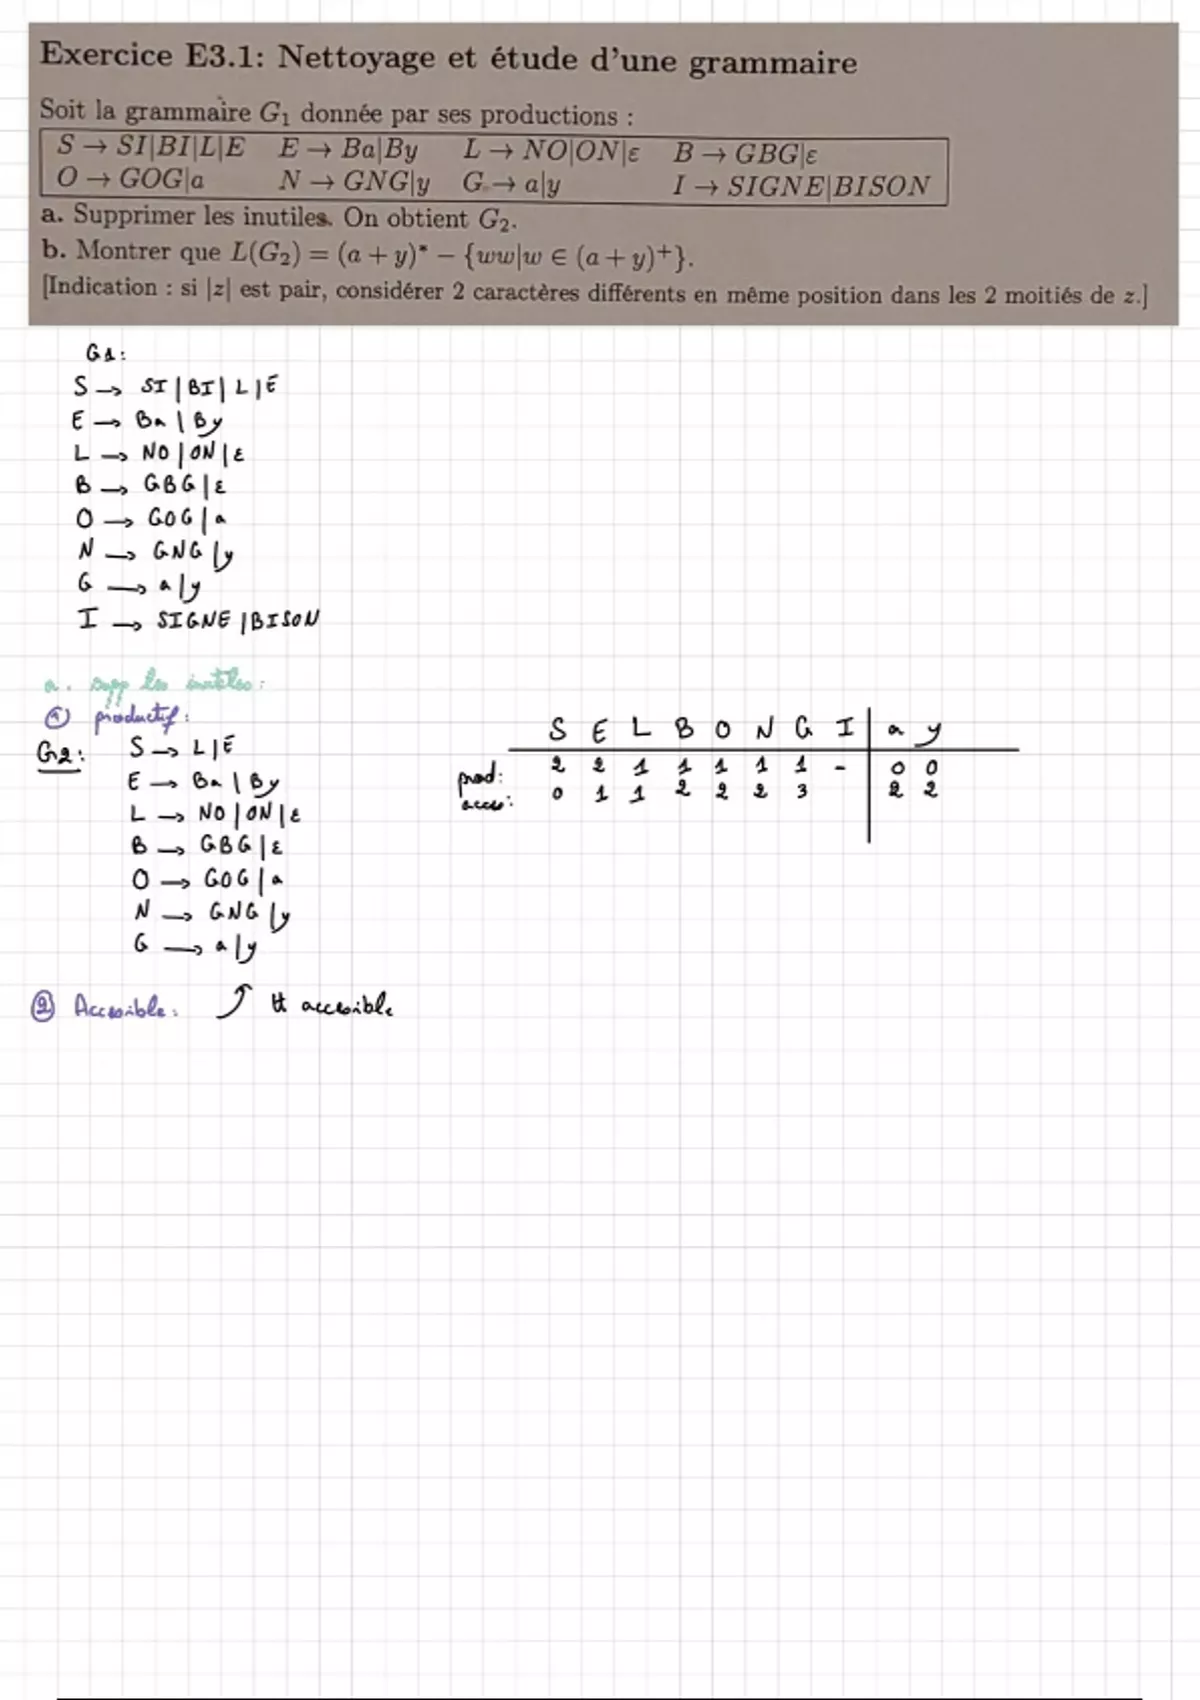 Exercice E3.1: Nettoyage et étude d'une grammaire
Soit la grammaire G₁ donnée par ses productions :
S → SI|BI|L|E E → Ba|By L → NO|ON|ε B → GBG|ε
O → GOG|a N → GNG|y G → a|y I → SIGNE|BISON
a. Supprimer les inutiles. On obtient G₂.
b. Montrer que L(G₂) = (a + y)* − {ww|w ∈ (a + y)⁺}.
[Indication : si |z| est pair, considérer 2 caractères différents en même position dans les 2 moitiés de z.]
G1:
S → SI | BI | L | É
E → Ba | By
L → NO | ON | ε
B → GBG | ε
O → GOG | a
N → GNG | y
G → a | y
I → SIGNE | BISON
a. supp les inutiles :
① productif :
G2: S → L | É
E → Ba | By
L → NO | ON | ε
B → GBG | ε
O → GOG | a
N → GNG | y
G → a | y
S E L B O N G I | a y
prod: 2 2 1 1 1 1 1 - 0 0
acces: 0 1 1 2 2 2 3 2 2
② Accessible : ⤴ tt accessible